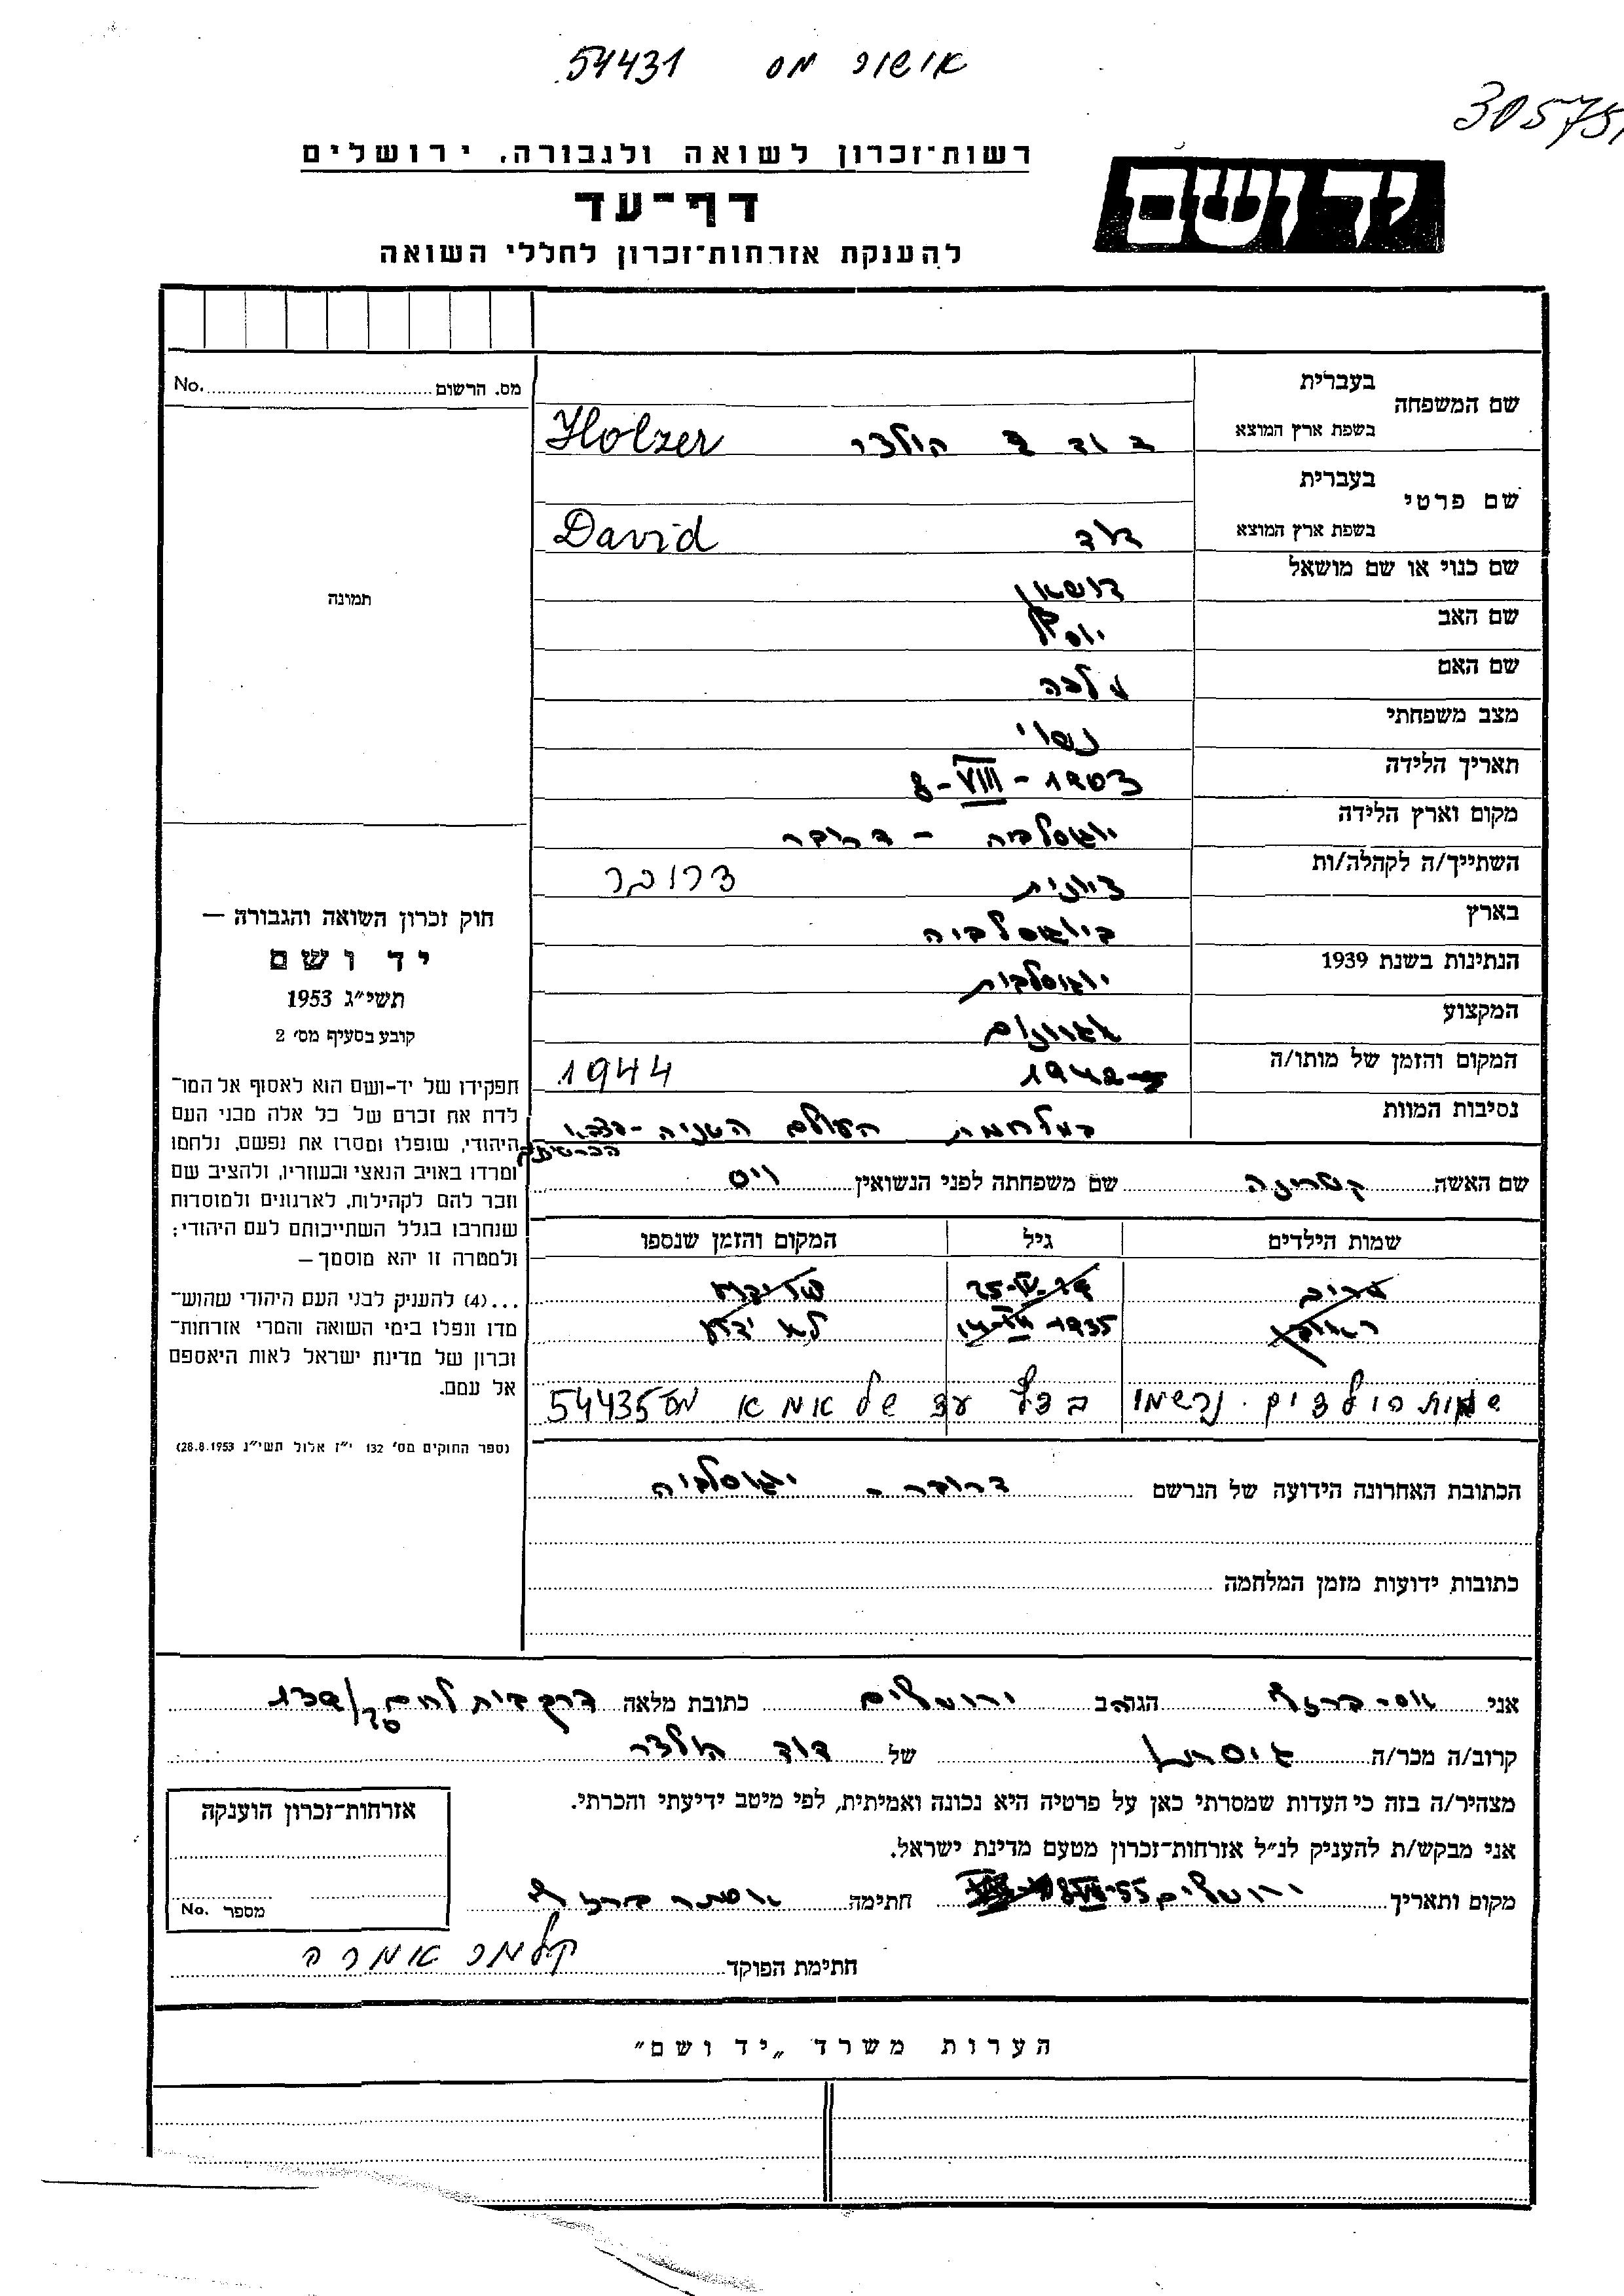 אישור מס 54431
305751
יד ושם
רשות־זכרון לשואה ולגבורה, ירושלים
דף־עד
להענקת אזרחות־זכרון לחללי השואה
מס. הרשום No.
תמונה
שם המשפחה בעברית
בשפת ארץ המוצא הולצר Holzer
שם פרטי בעברית
בשפת ארץ המוצא דוד David
שם כנוי או שם מושאל דושאן
שם האב יוסף
שם האם מלכה
מצב משפחתי נשוי
תאריך הלידה 8-VIII-1903
מקום וארץ הלידה יוגוסלביה - דרובר
השתייך/ה לקהלה/ות ציונית דרובר
בארץ ביוגוסלביה
הנתינות בשנת 1939 יוגוסלבית
המקצוע
המקום והזמן של מותו/ה 1942 1944
נסיבות המוות במלחמת העולם השניה
שם האשה קטרינה שם משפחתה לפני הנשואין ויס
שמות הילדים גיל המקום והזמן שנספו
1935 לא ידוע
שמות הילדים נרשמו בדף עד של אמא מס 54435
הכתובת האחרונה הידועה של הנרשם דרובר - יוגוסלביה
כתובות ידועות מזמן המלחמה
חוק זכרון השואה והגבורה —
יד ושם
תשי״ג 1953
קובע בסעיף מס׳ 2
תפקידו של יד-ושם הוא לאסוף אל המו־
לדת את זכרם של כל אלה מבני העם
היהודי, שנפלו ומסרו את נפשם, נלחמו
ומרדו באויב הנאצי ובעוזריו, ולהציב שם
וזכר להם לקהילות, לארגונים ולמוסדות
שנחרבו בגלל השתייכותם לעם היהודי;
ולמטרה זו יהא מוסמך —
...(4) להעניק לבני העם היהודי שהוש־
מדו ונפלו בימי השואה והמרי אזרחות־
זכרון של מדינת ישראל לאות היאספם
אל עמם.
(ספר החוקים מס׳ 132 י״ז אלול תשי״ג 28.8.1953)
אני הגר/ה ב ירושלים כתובת מלאה דרך בית לחם
קרוב/ה מכר/ה גיסתו של דוד הולצר
מצהיר/ה בזה כי העדות שמסרתי כאן על פרטיה היא נכונה ואמיתית, לפי מיטב ידיעתי והכרתי.
אני מבקש/ת להעניק לנ״ל אזרחות־זכרון מטעם מדינת ישראל.
מקום ותאריך ירושלים חתימה אסתר
חתימת הפוקד קלמר אמרה
אזרחות־זכרון הוענקה
מספר No.
הערות משרד „יד ושם״